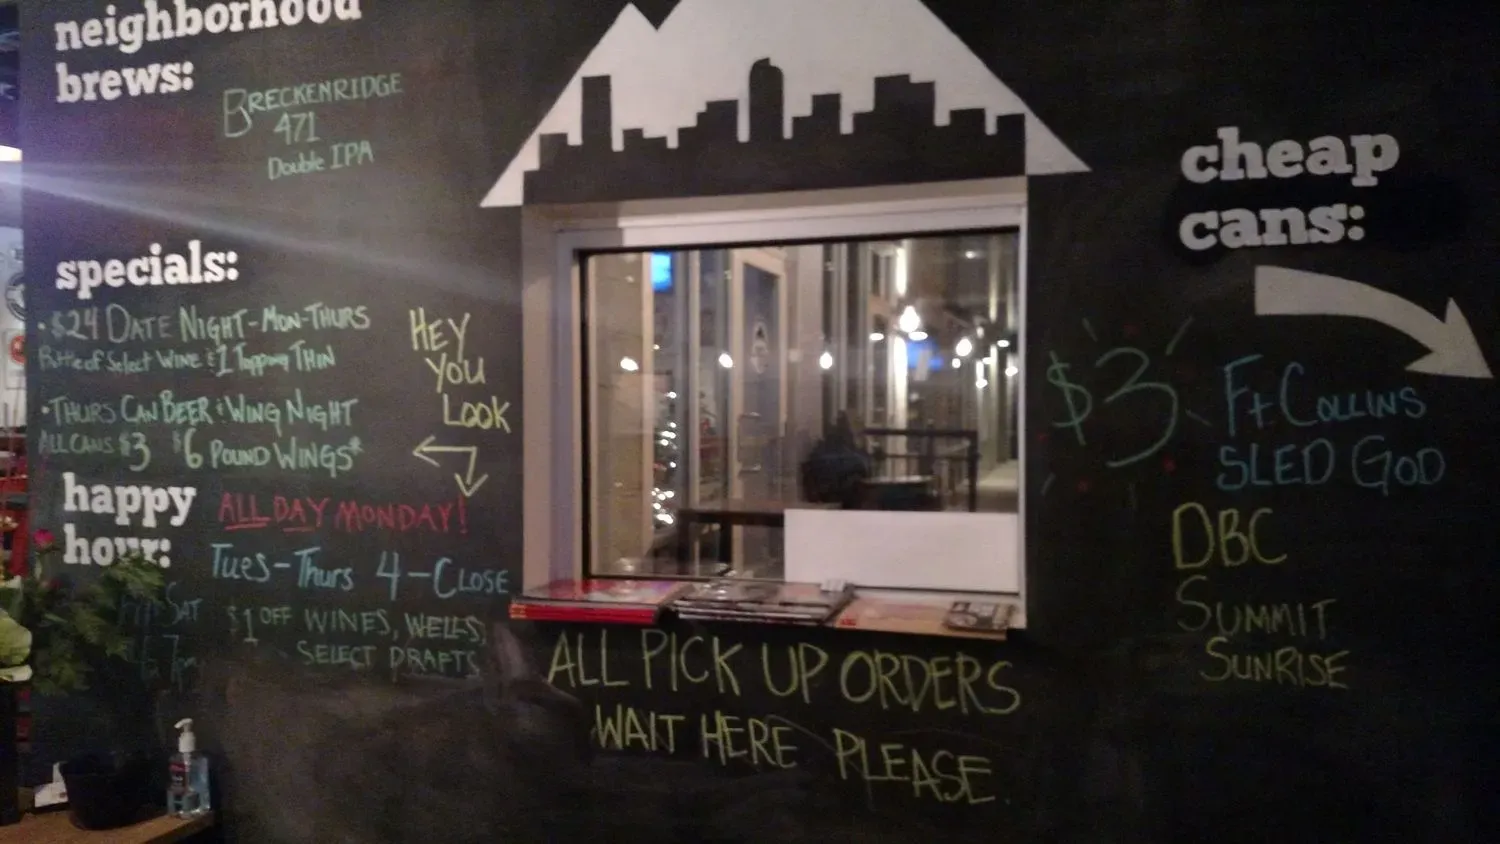 neighborhood
brews:
BRECKENRIDGE
471
Double IPA
specials:
• $24 DATE NIGHT - MON-THURS
Bottle of Select WINE & 1 Topping THIN
• THURS CAN BEER & WING NIGHT
ALL CANS $3 $6 POUND WINGS*
HEY
YOU
LOOK
happy
hour:
ALL DAY MONDAY!
TUES-THURS 4-CLOSE
SAT
$1 OFF WINES, WELLS,
SELECT DRAFTS
ALL PICK UP ORDERS
WAIT HERE PLEASE.
cheap
cans:
$3
Ft COLLINS
SLED GOD
DBC
SUMMIT
SUNRISE